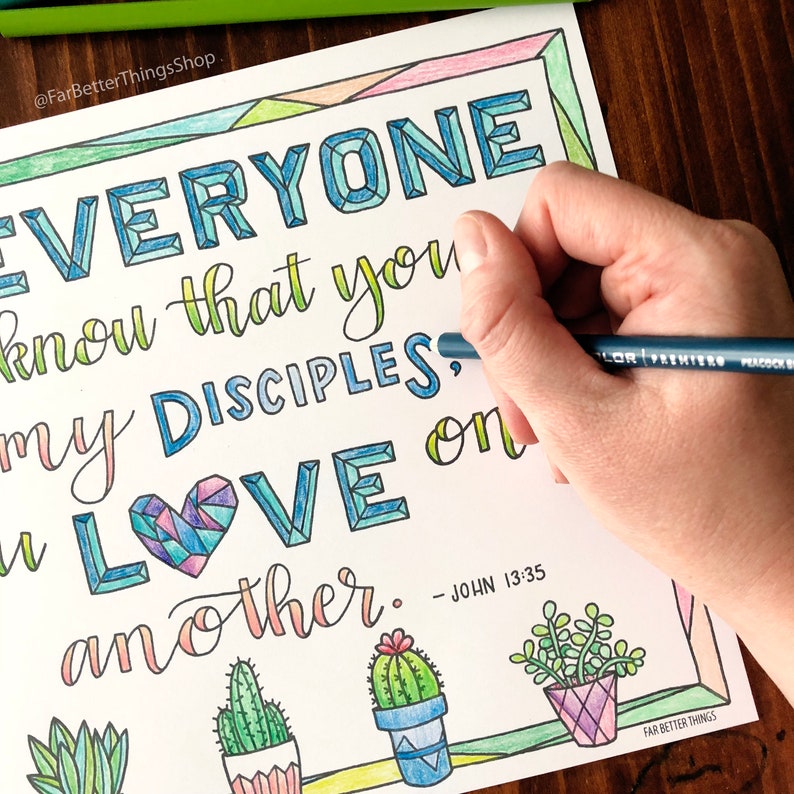 @FarBetterThingsShop
EVERYONE
know that you
my DISCIPLES,
LOVE on
another.
- JOHN 13:35
PREMIER
PEACOCK
FAR BETTER THINGS